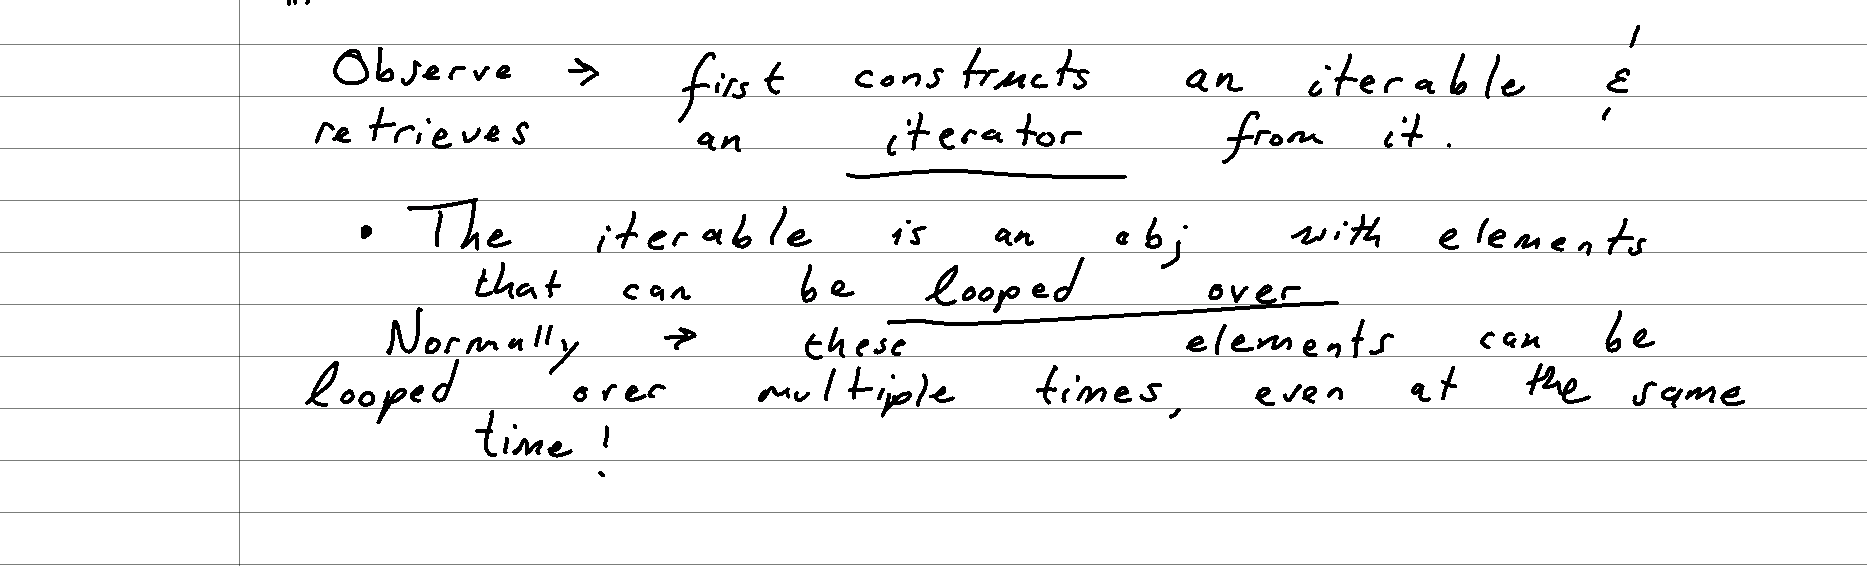 Observe → first constructs an iterable &
retrieves an iterator from it.
• The iterable is an obj with elements
that can be looped over
Normally → these elements can be
looped over multiple times, even at the same
time!